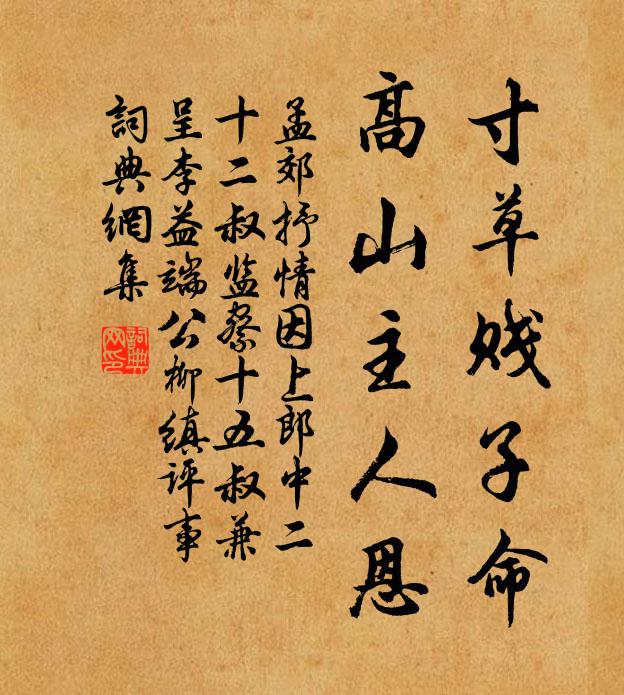 寸草贱子命
高山主人恩
孟郊抒情因上郎中二
十二叔监察十五叔兼
呈李益端公柳缜评事
詞典網集
詞典网印